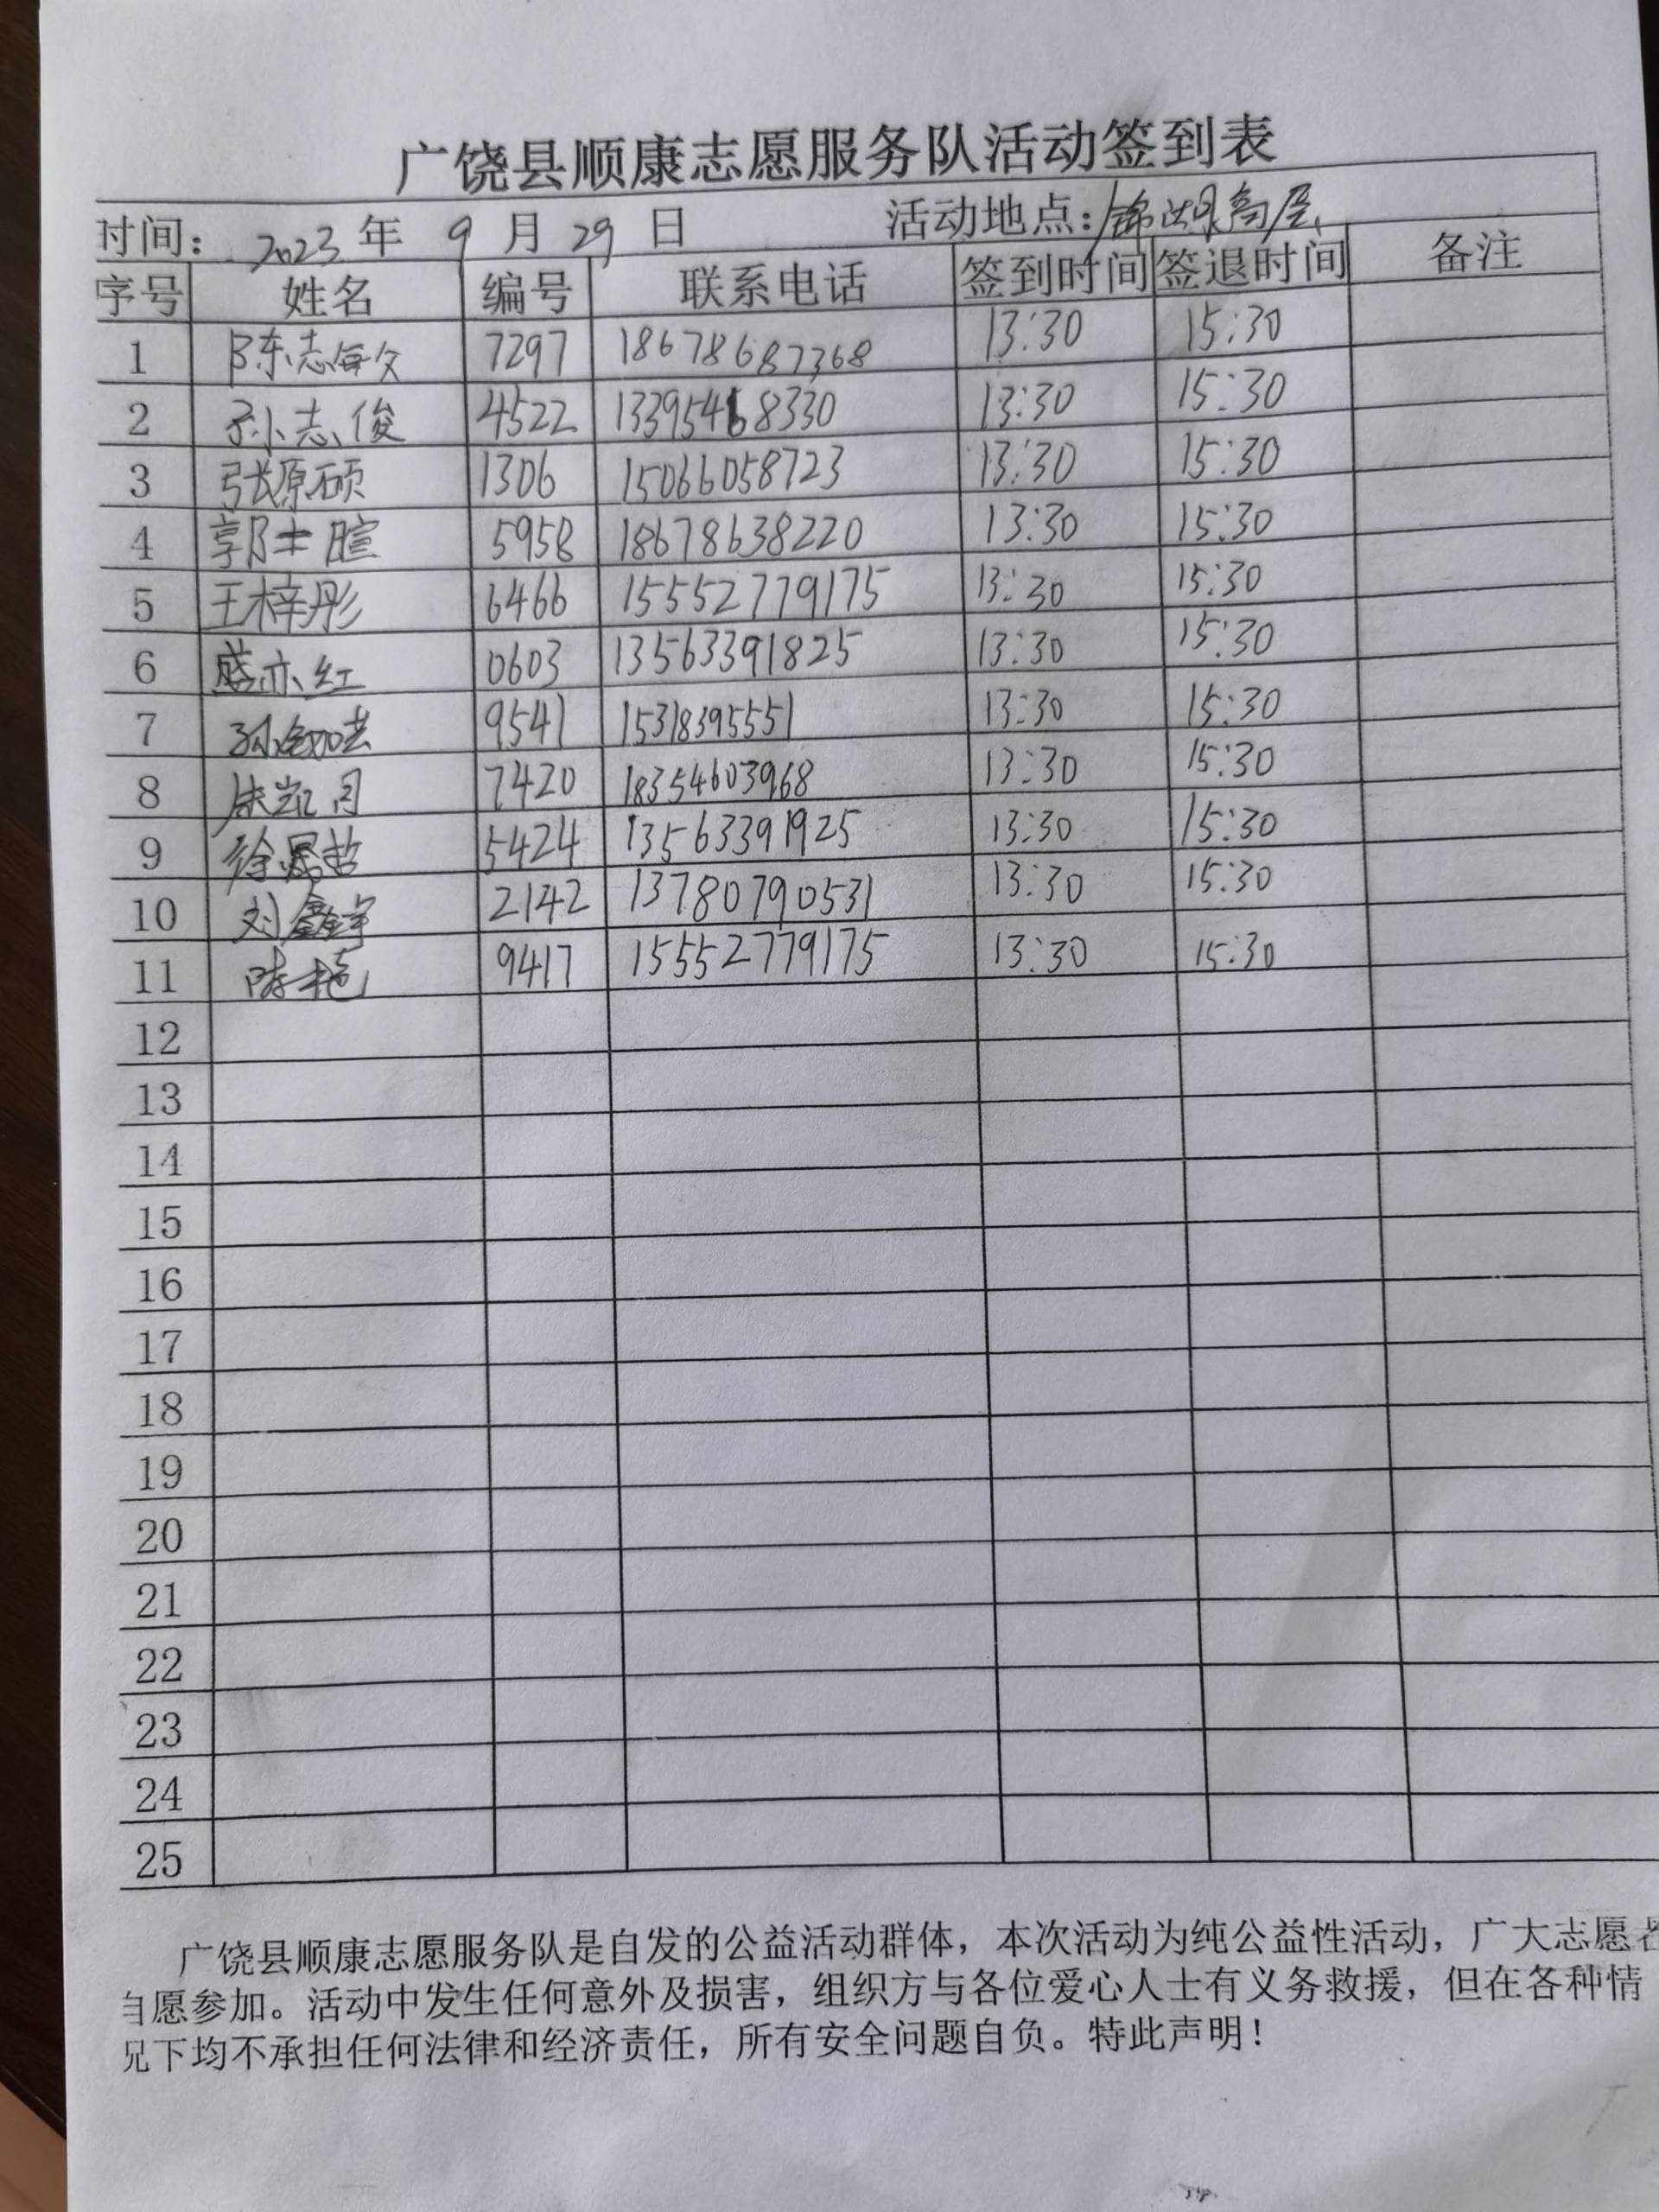 广饶县顺康志愿服务队活动签到表
时间: 2023 年 9 月 29 日 活动地点: 锦湖高层
序号 姓名 编号 联系电话 签到时间 签退时间 备注
1 陈志敏 7297 18678687368 13:30 15:30
2 孙志俊 4522 13395468330 13:30 15:30
3 张原硕 1306 15066058723 13:30 15:30
4 郭 暄 5958 18678638220 13:30 15:30
5 王梓彤 6466 15552779175 13:30 15:30
6 盛亦红 0603 13563391825 13:30 15:30
7 孙 9541 15318395551 13:30 15:30
8 凯月 7420 18354603968 13:30 15:30
9 徐 哲 5424 13563391925 13:30 15:30
10 刘鑫宇 2142 13780790531 13:30 15:30
11 陈艳 9417 15552779175 13:30 15:30
12
13
14
15
16
17
18
19
20
21
22
23
24
25
广饶县顺康志愿服务队是自发的公益活动群体，本次活动为纯公益性活动，广大志愿者
自愿参加。活动中发生任何意外及损害，组织方与各位爱心人士有义务救援，但在各种情
况下均不承担任何法律和经济责任，所有安全问题自负。特此声明！